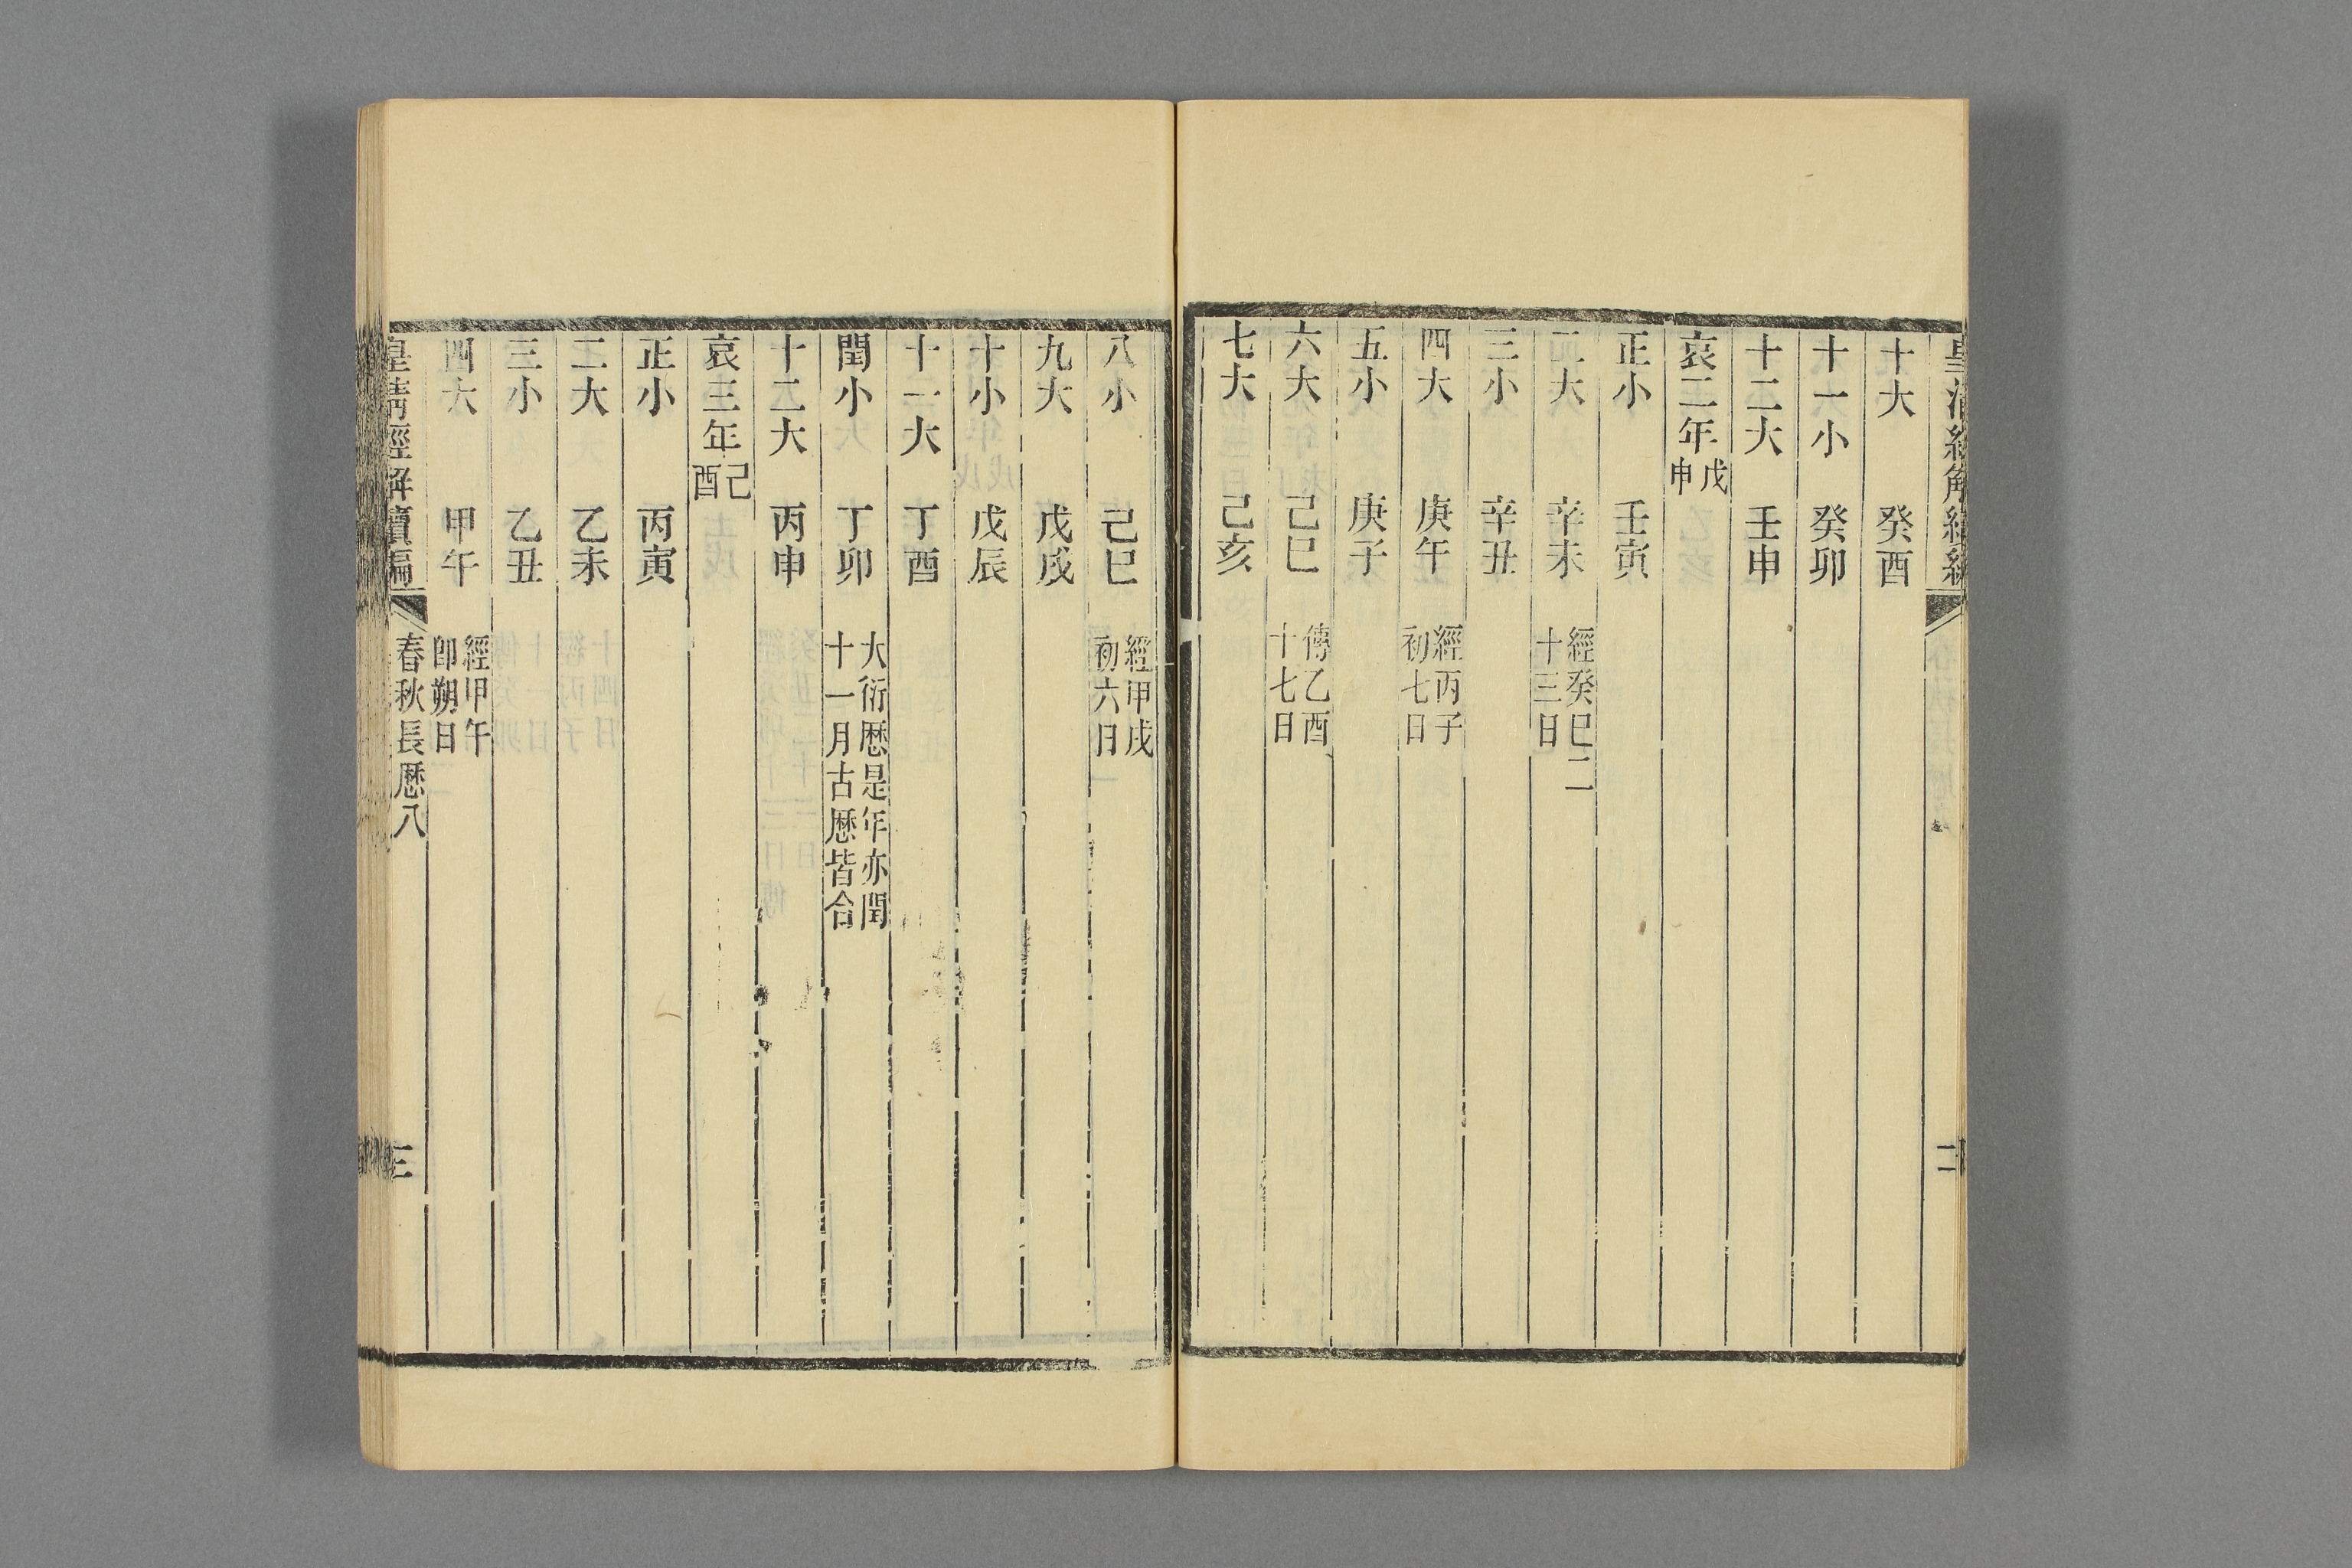 十大 癸酉
十一小 癸卯
十二大 壬申
哀二年戊申
正小 壬寅
二大 辛未 經癸巳二十三日
三小 辛丑
四大 庚午 經丙子初七日
五小 庚子
六大 己巳 傳乙酉十七日
七大 己亥
八小 己巳 經甲戌初六日
九大 戊戌
十小 戊辰
十一大 丁酉
閏小 丁卯 大衍曆是年亦閏十一月古曆皆合
十二大 丙申
哀三年己酉
正小 丙寅
二大 乙未
三小 乙丑
四大 甲午 經甲午卽朔日
皇淸經解續編 春秋長曆八 三